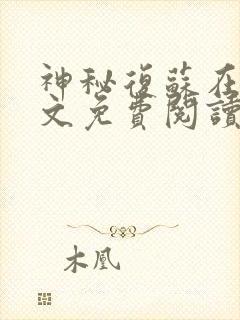 神秘復蘇在
文免費閱讀
木凰